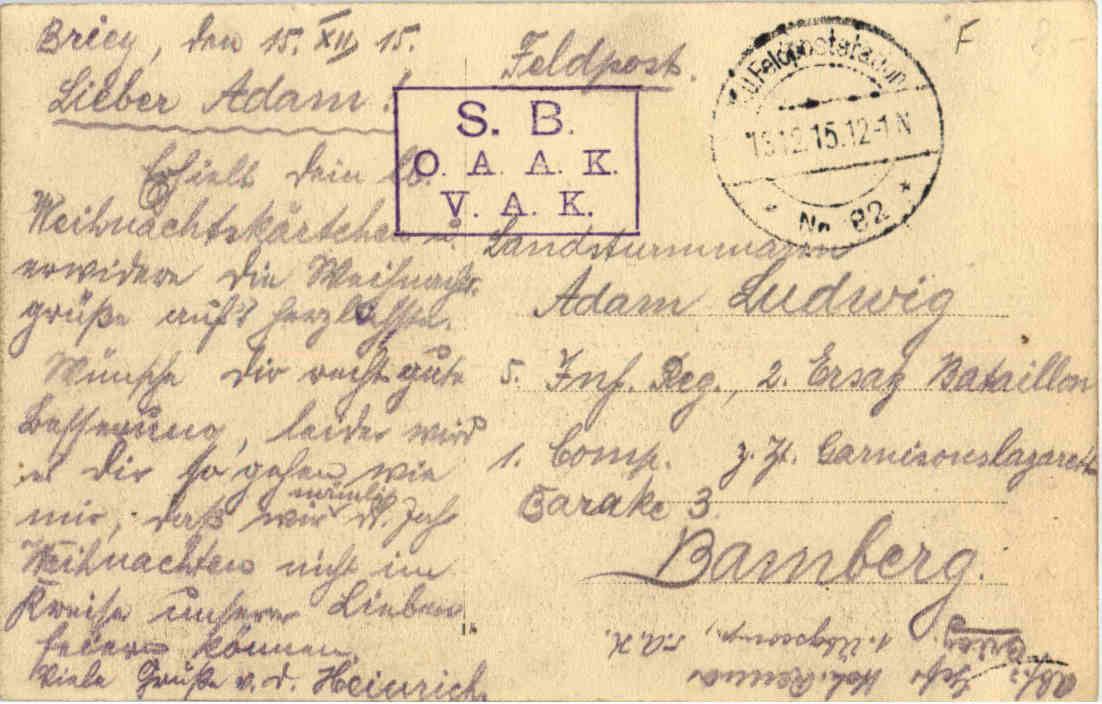 Briey, den 15. XII 15.
Lieber Adam!
Erhielt Dein lb.
Weihnachtskärtchen u.
erwidere die Weihnachts-
grüße auf's herzlichste.
Wünsche Dir recht gute
Besserung, leider wird
es Dir so gehen wie
mir, daß wir nämlich d. Jahr
Weihnachten nicht im
Kreise unserer Lieben
feiern können.
Viele Grüße v. d. Heinrich
Feldpost.
S. B.
O. A. A. K.
V. A. K.
K.D. Feldpoststation
15.12.15.12-1N
No 82
F
8.-
Landsturmmann
Adam Ludwig
5. Inf. Reg., 2. Ersaz Bataillon
1. Comp. z. Zt. Garnisonslazarett
Barake 3
Bamberg.
Abs: